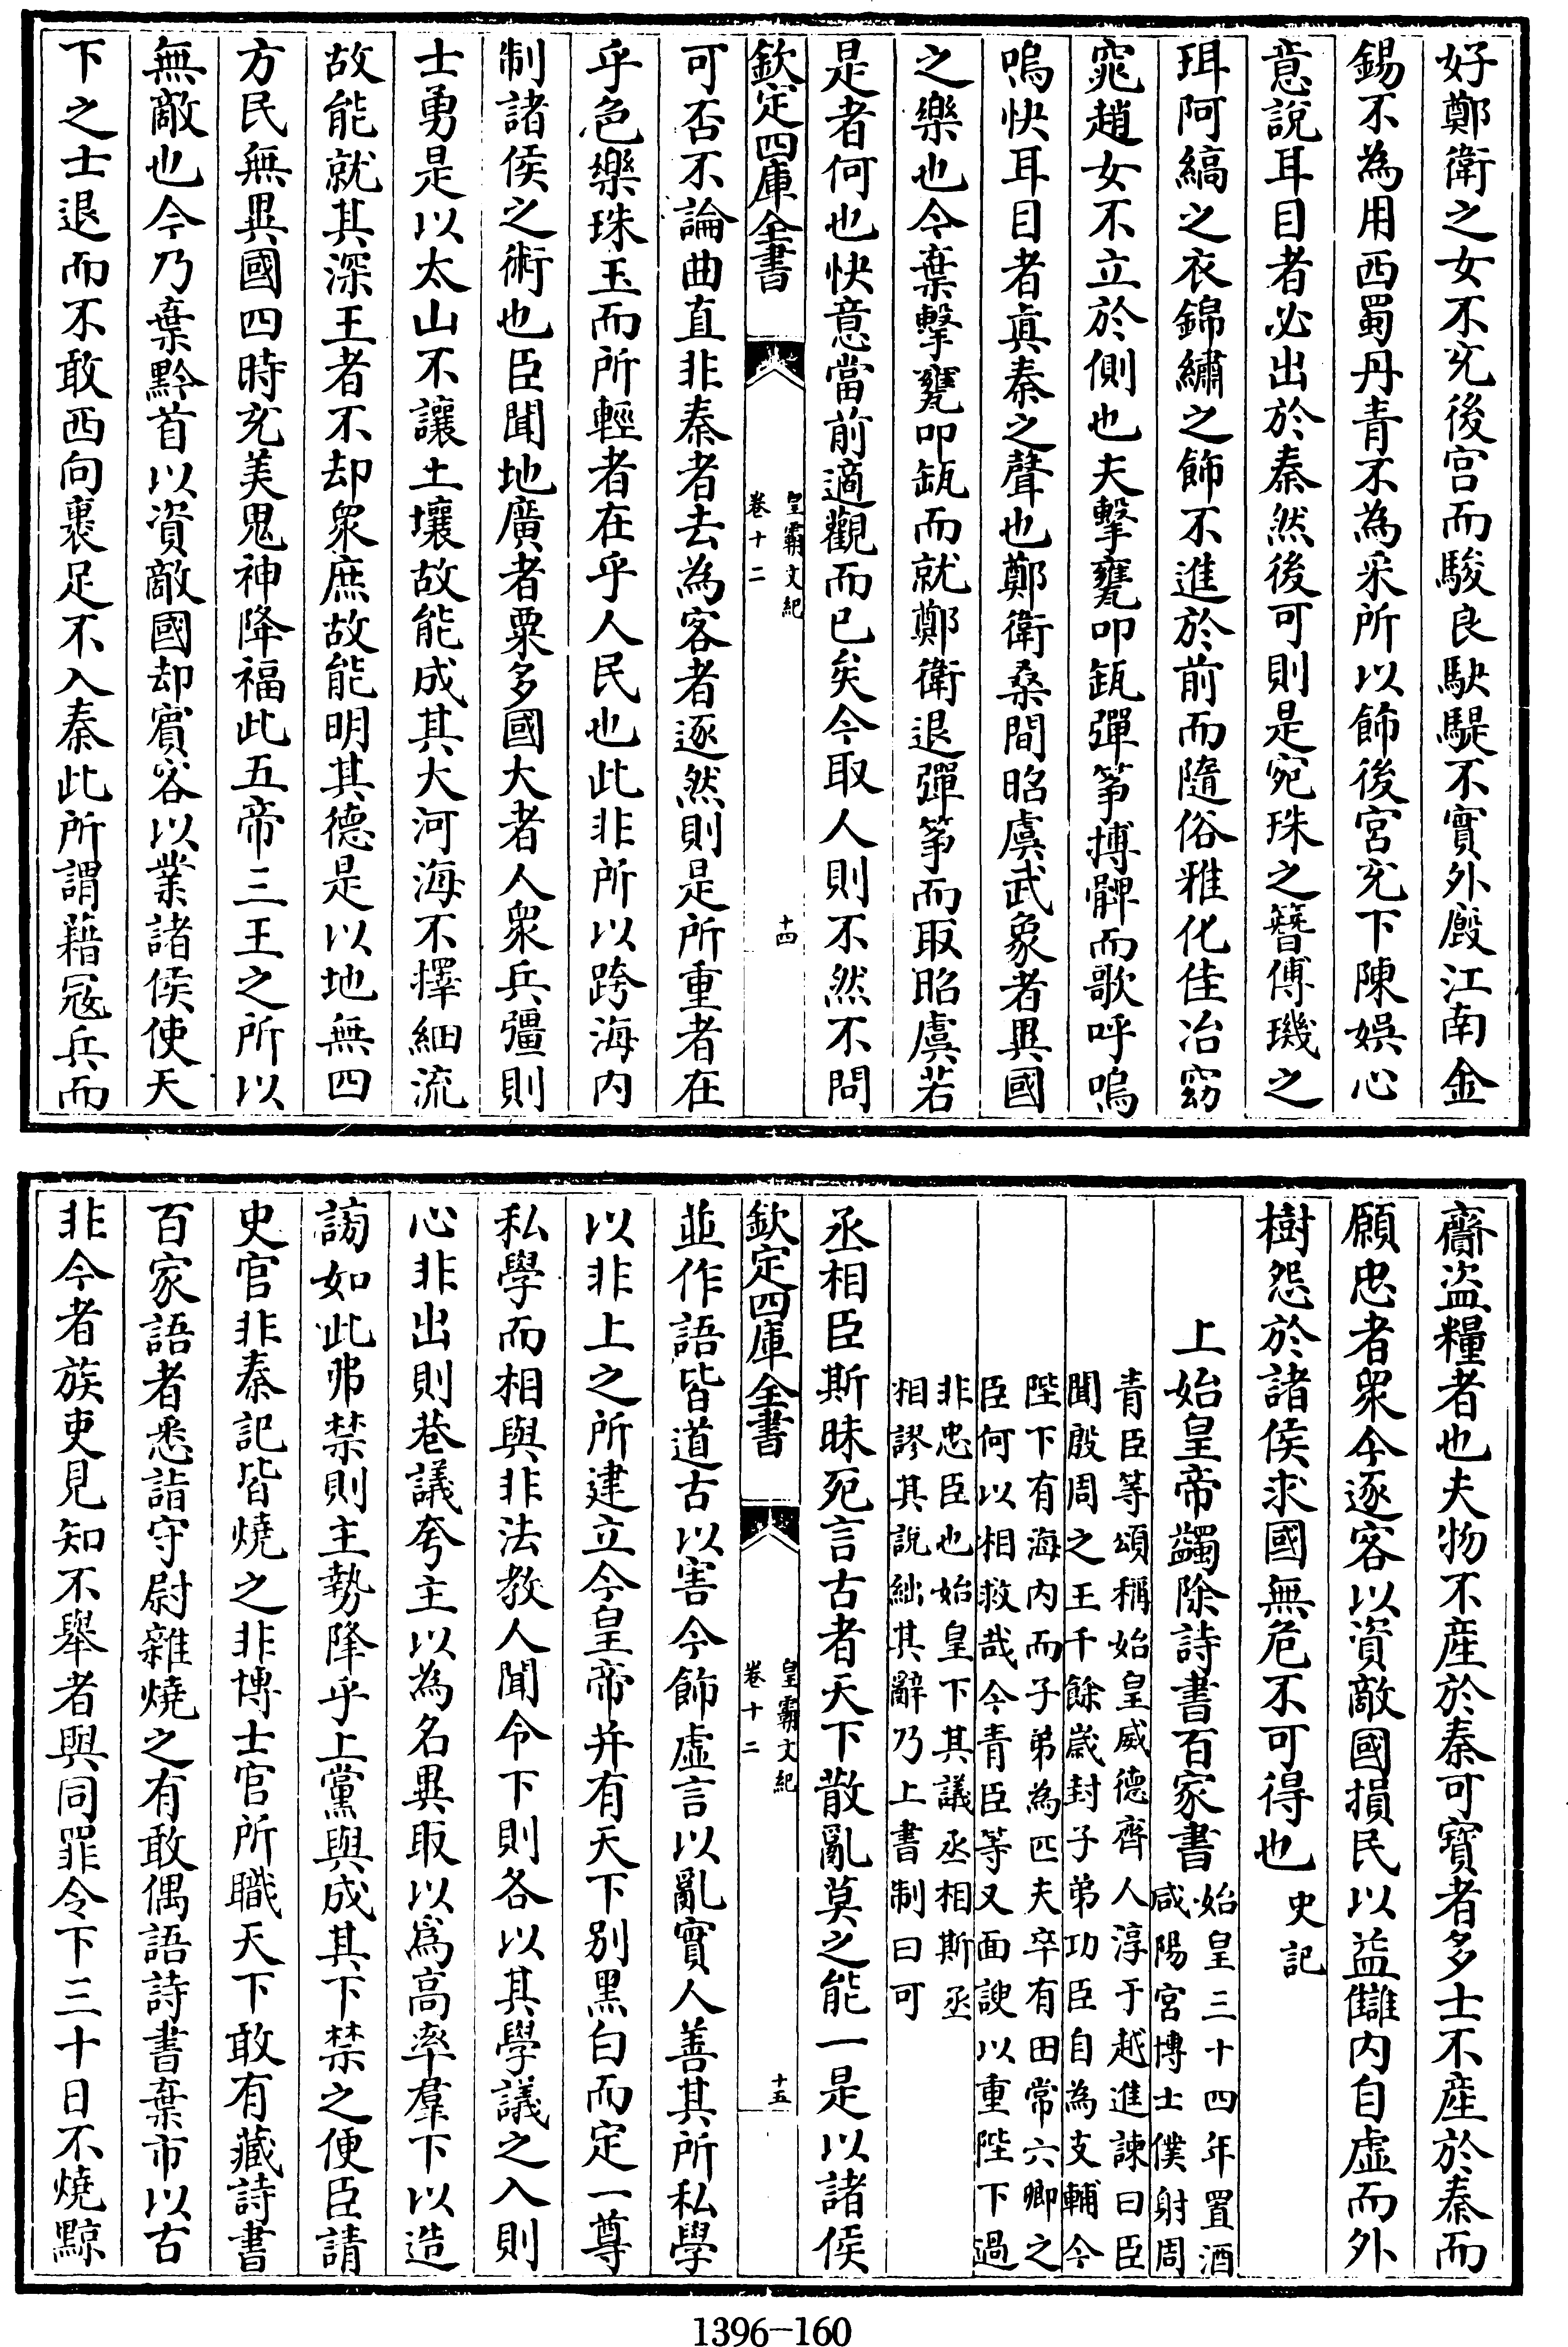 好鄭衛之女不充後宫而駿良駃騠不實外廄江南金
錫不為用西蜀丹青不為采所以飾後宮充下陳娯心
意說耳目者必出於秦然後可則是宛珠之簪傅璣之
珥阿縞之衣錦繡之飾不進於前而隨俗雅化佳冶窈
窕趙女不立於側也夫擊甕叩缻彈筝搏髀而歌呼嗚
嗚快耳目者真秦之聲也鄭衛桑間昭虞武象者異國
之樂也今棄擊甕叩缻而就鄭衛退彈筝而取昭虞若
是者何也快意當前適觀而已矣今取人則不然不問
欽定四庫全書
皇霸文紀
卷十二
十四
可否不論曲直非秦者去為客者逐然則是所重者在
乎色樂珠玉而所輕者在乎人民也此非所以跨海内
制諸侯之術也臣聞地廣者粟多國大者人衆兵彊則
士勇是以太山不讓土壤故能成其大河海不擇細流
故能就其深王者不却衆庶故能明其德是以地無四
方民無異國四時充美鬼神降福此五帝三王之所以
無敵也今乃棄黔首以資敵國却賓客以業諸侯使天
下之士退而不敢西向裹足不入秦此所謂藉冦兵而
齎盜糧者也夫物不産於秦可寶者多士不産於秦而
願忠者衆今逐客以資敵國損民以益讎内自虚而外
樹怨於諸侯求國無危不可得也史記
上始皇帝蠲除詩書百家書始皇三十四年置酒
咸陽宮博士僕射周
青臣等頌稱始皇威德齊人淳于越進諫曰臣
聞殷周之王千餘歲封子弟功臣自為支輔今
陛下有海内而子弟為匹夫卒有田常六卿之
臣何以相救哉今青臣等又面諛以重陛下過
非忠臣也始皇下其議丞相斯丞
相謬其說絀其辭乃上書制曰可
丞相臣斯昧死言古者天下散亂莫之能一是以諸侯
欽定四庫全書
皇霸文紀
卷十二
十五
並作語皆道古以害今飾虚言以亂實人善其所私學
以非上之所建立今皇帝并有天下别黑白而定一尊
私學而相與非法教人聞令下則各以其學議之入則
心非出則巷議夸主以為名異取以爲高率羣下以造
謗如此弗禁則主勢降乎上黨與成其下禁之便臣請
史官非秦記皆燒之非博士官所職天下敢有藏詩書
百家語者悉詣守尉雜燒之有敢偶語詩書棄市以古
非今者族吏見知不舉者與同罪令下三十日不燒黥
1396-160